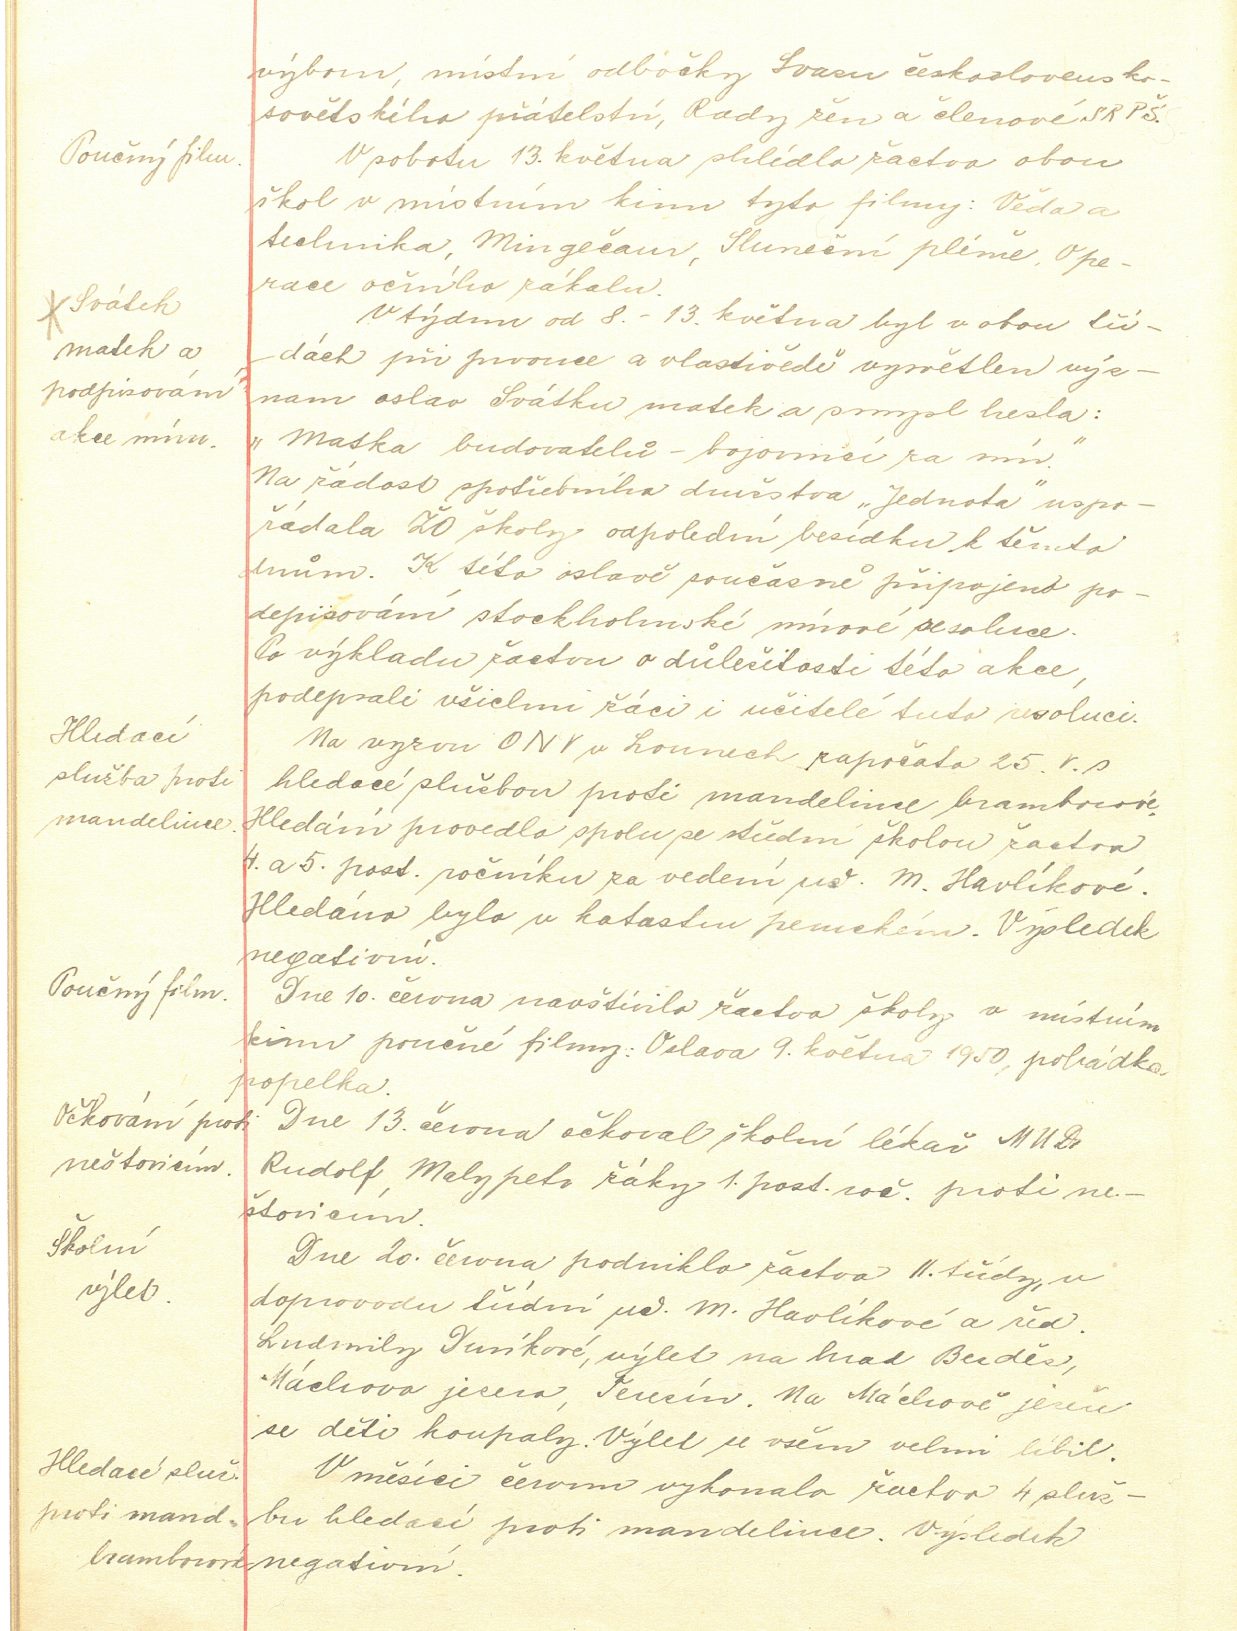 výboru, místní odbočky Svazu československo-
sovětského přátelství, Rady žen a členové SRPŠ.
Poučný film.
V sobotu 13. května shlédlo žactvo obou
škol v místním kinu tyto filmy: Věda a
technika, Mingečaur, Sluneční plémě, Ope-
race očního zákalu.
Svátek
matek a
podpisování
akce míru.
V týdnu od 8. - 13. května byl v obou tří-
dách při prvouce a vlastivědě vysvětlen výz-
nam oslav Svátku matek a smysl hesla:
„Matka budovatelů - bojovnicí za mír."
Na žádost spotřebního družstva „Jednota" uspo-
řádala ŽO školy odpolední besídku k těmto
dnům. K této oslavě současně připojeno po-
depisování stockholmské mírové resoluce.
Po výkladu žactvu o důležitosti této akce,
podepsali všichni žáci i učitelé tuto resoluci.
Hledací
služba proti
mandelince.
Na vyzvu ONV v Lounech započato 25. V. s
hledací službou proti mandelince bramborové.
Hledání provedlo spolu se střední školou žactvo
4. a 5. post. ročníku za vedení uč. M. Havlíkové.
Hledáno bylo v katastru peruckém. Výsledek
negativní.
Poučný film.
Dne 10. června navštívilo žactvo školy v místním
kinu poučné filmy: Oslava 9. května 1950, pohádka
popelka.
Očkování proti
neštovicím.
Dne 13. června očkoval školní lékař MUDr
Rudolf Malypetr žáky 1. post. roč. proti ne-
štovicím.
Školní
výlet.
Dne 20. června podniklo žactvo II. třídy, v
doprovodu třídní uč. M. Havlíkové a řed.
Ludmily Duníkové, výlet na hrad Bezděz,
Máchovo jezero, Terezín. Na Máchově jezeře
se děti koupaly. Výlet se všem velmi líbil.
Hledací služ.
proti mand-
bramborové
V měsíci červnu vykonalo žactvo 4 služ-
bu hledací proti mandelince. Výsledek
negativní.